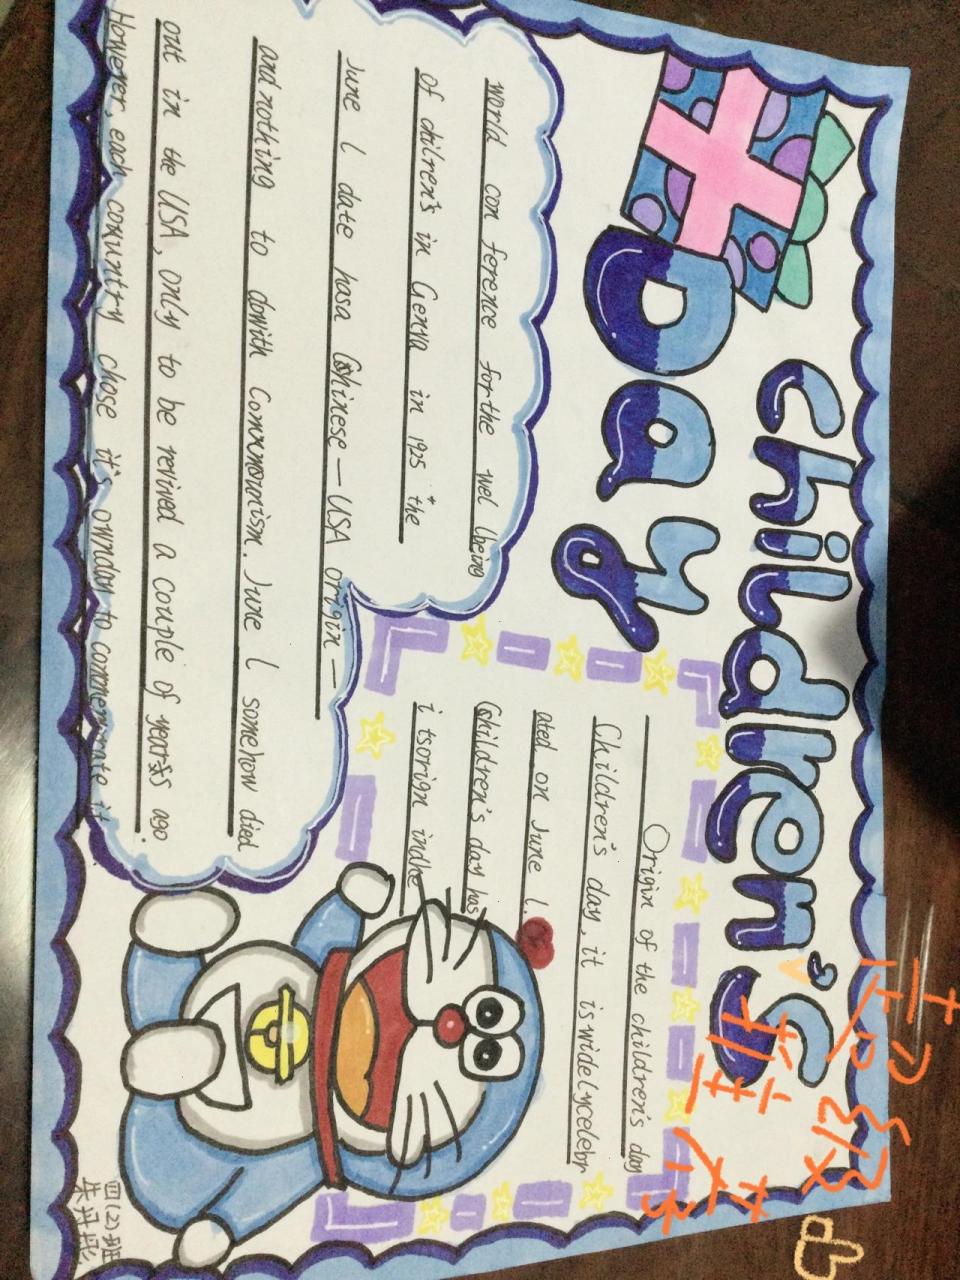 children's
Day
Origin of the children's day
Children's day, it iswidelycelebr
ated on June 1.
Children's day has
i tsorign indhe
world con ference forthe wel being
of chilren's in Genva in 1925 "the
June 1 date hasa Chinese — USA origin —
and nothing to dowith Commornism. June 1 somehow died
out in the USA, only to be revived a couple of years ago.
However, each comuntry chose it's ownday to commemorate it.
四(2)班